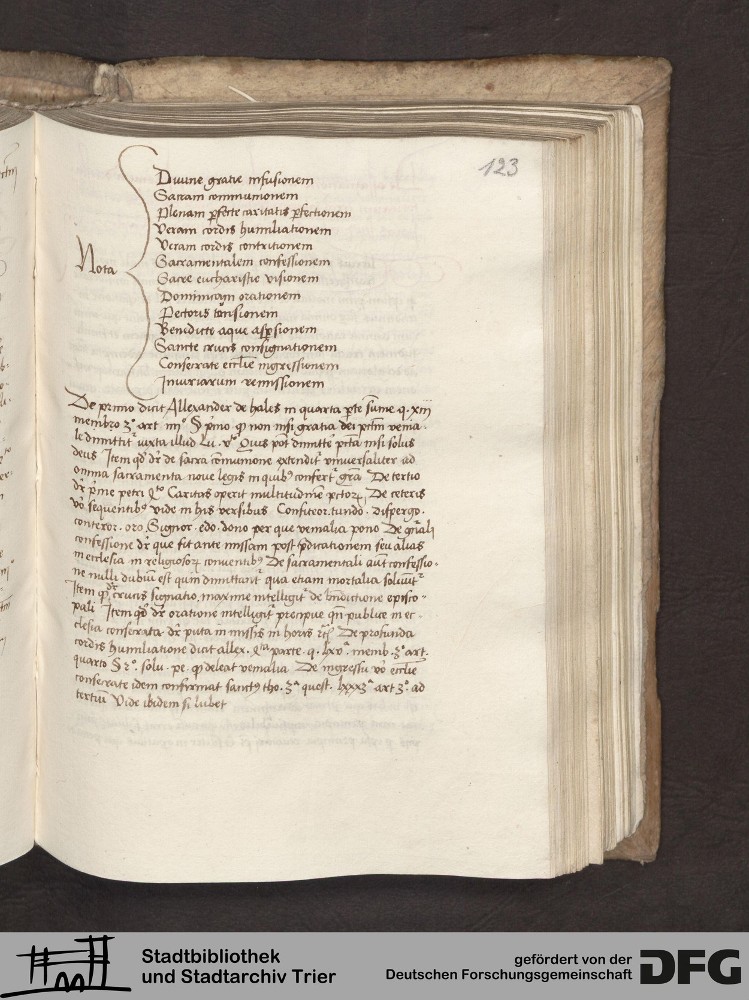 123
Diuine gratie infusionem
Sacram communionem
Plenam pfecte caritatis pfectionem
Veram cordis humiliationem
Veram cordis contritionem
Nota
Sacramentalem confessionem
Sacre eucharistie visionem
Dominicam orationem
Pectoris tonsionem
Benedicte aque aspsionem
Sancte crucis consignationem
Consecrate ecclie ingressionem
Iniuriarum remissionem
De primo dicit Allexander de hales in quarta pte sume q. xiij
membro 3º art iijº S pmo qp non nisi gratia dei pctm venia
le dimittit iuxta illud Lu. vº Quis pot dimitte pcta nisi solus
deus Item qd dr de sacra comunione extendit vniuersaliter ad
omnia sacramenta noue legis in quibꝰ confert gra De tertio
dr pme petri qto Caritas operit multitudine pctorꝝ De ceteris
vo sequentibꝰ vide in his versibus Confiteor. tundo. dispergo.
conteror. oro. Signor. edo. dono per que venialia pono De gnali
confessione dr que fit ante missam post pdicationem seu alias
in ecclesia in religiosorꝝ conuentibꝰ De sacramentali aut confessio-
ne nulli dubiu est quin dimittant qua etiam mortalia soluut
Item qd dr crucis signatio, maxime intelligit de bndictione episco-
pali Item qd dr oratione intelligit precipue qn publice in ec-
clesia consecrata dr puta in missis in horis rc De profunda
cordis humiliatione dicit allex. qta parte. q. lxv. memb. 3º art.
quarto S rº. solu. pe. qp deleat venialia De ingressu vo ecclie
consecrate idem confirmat sanctꝰ tho. 3ª quest. lxxx3ª art 3º. ad
tertiu Vide ibidem si lubet
Stadtbibliothek
und Stadtarchiv Trier
gefördert von der
Deutschen Forschungsgemeinschaft
DFG